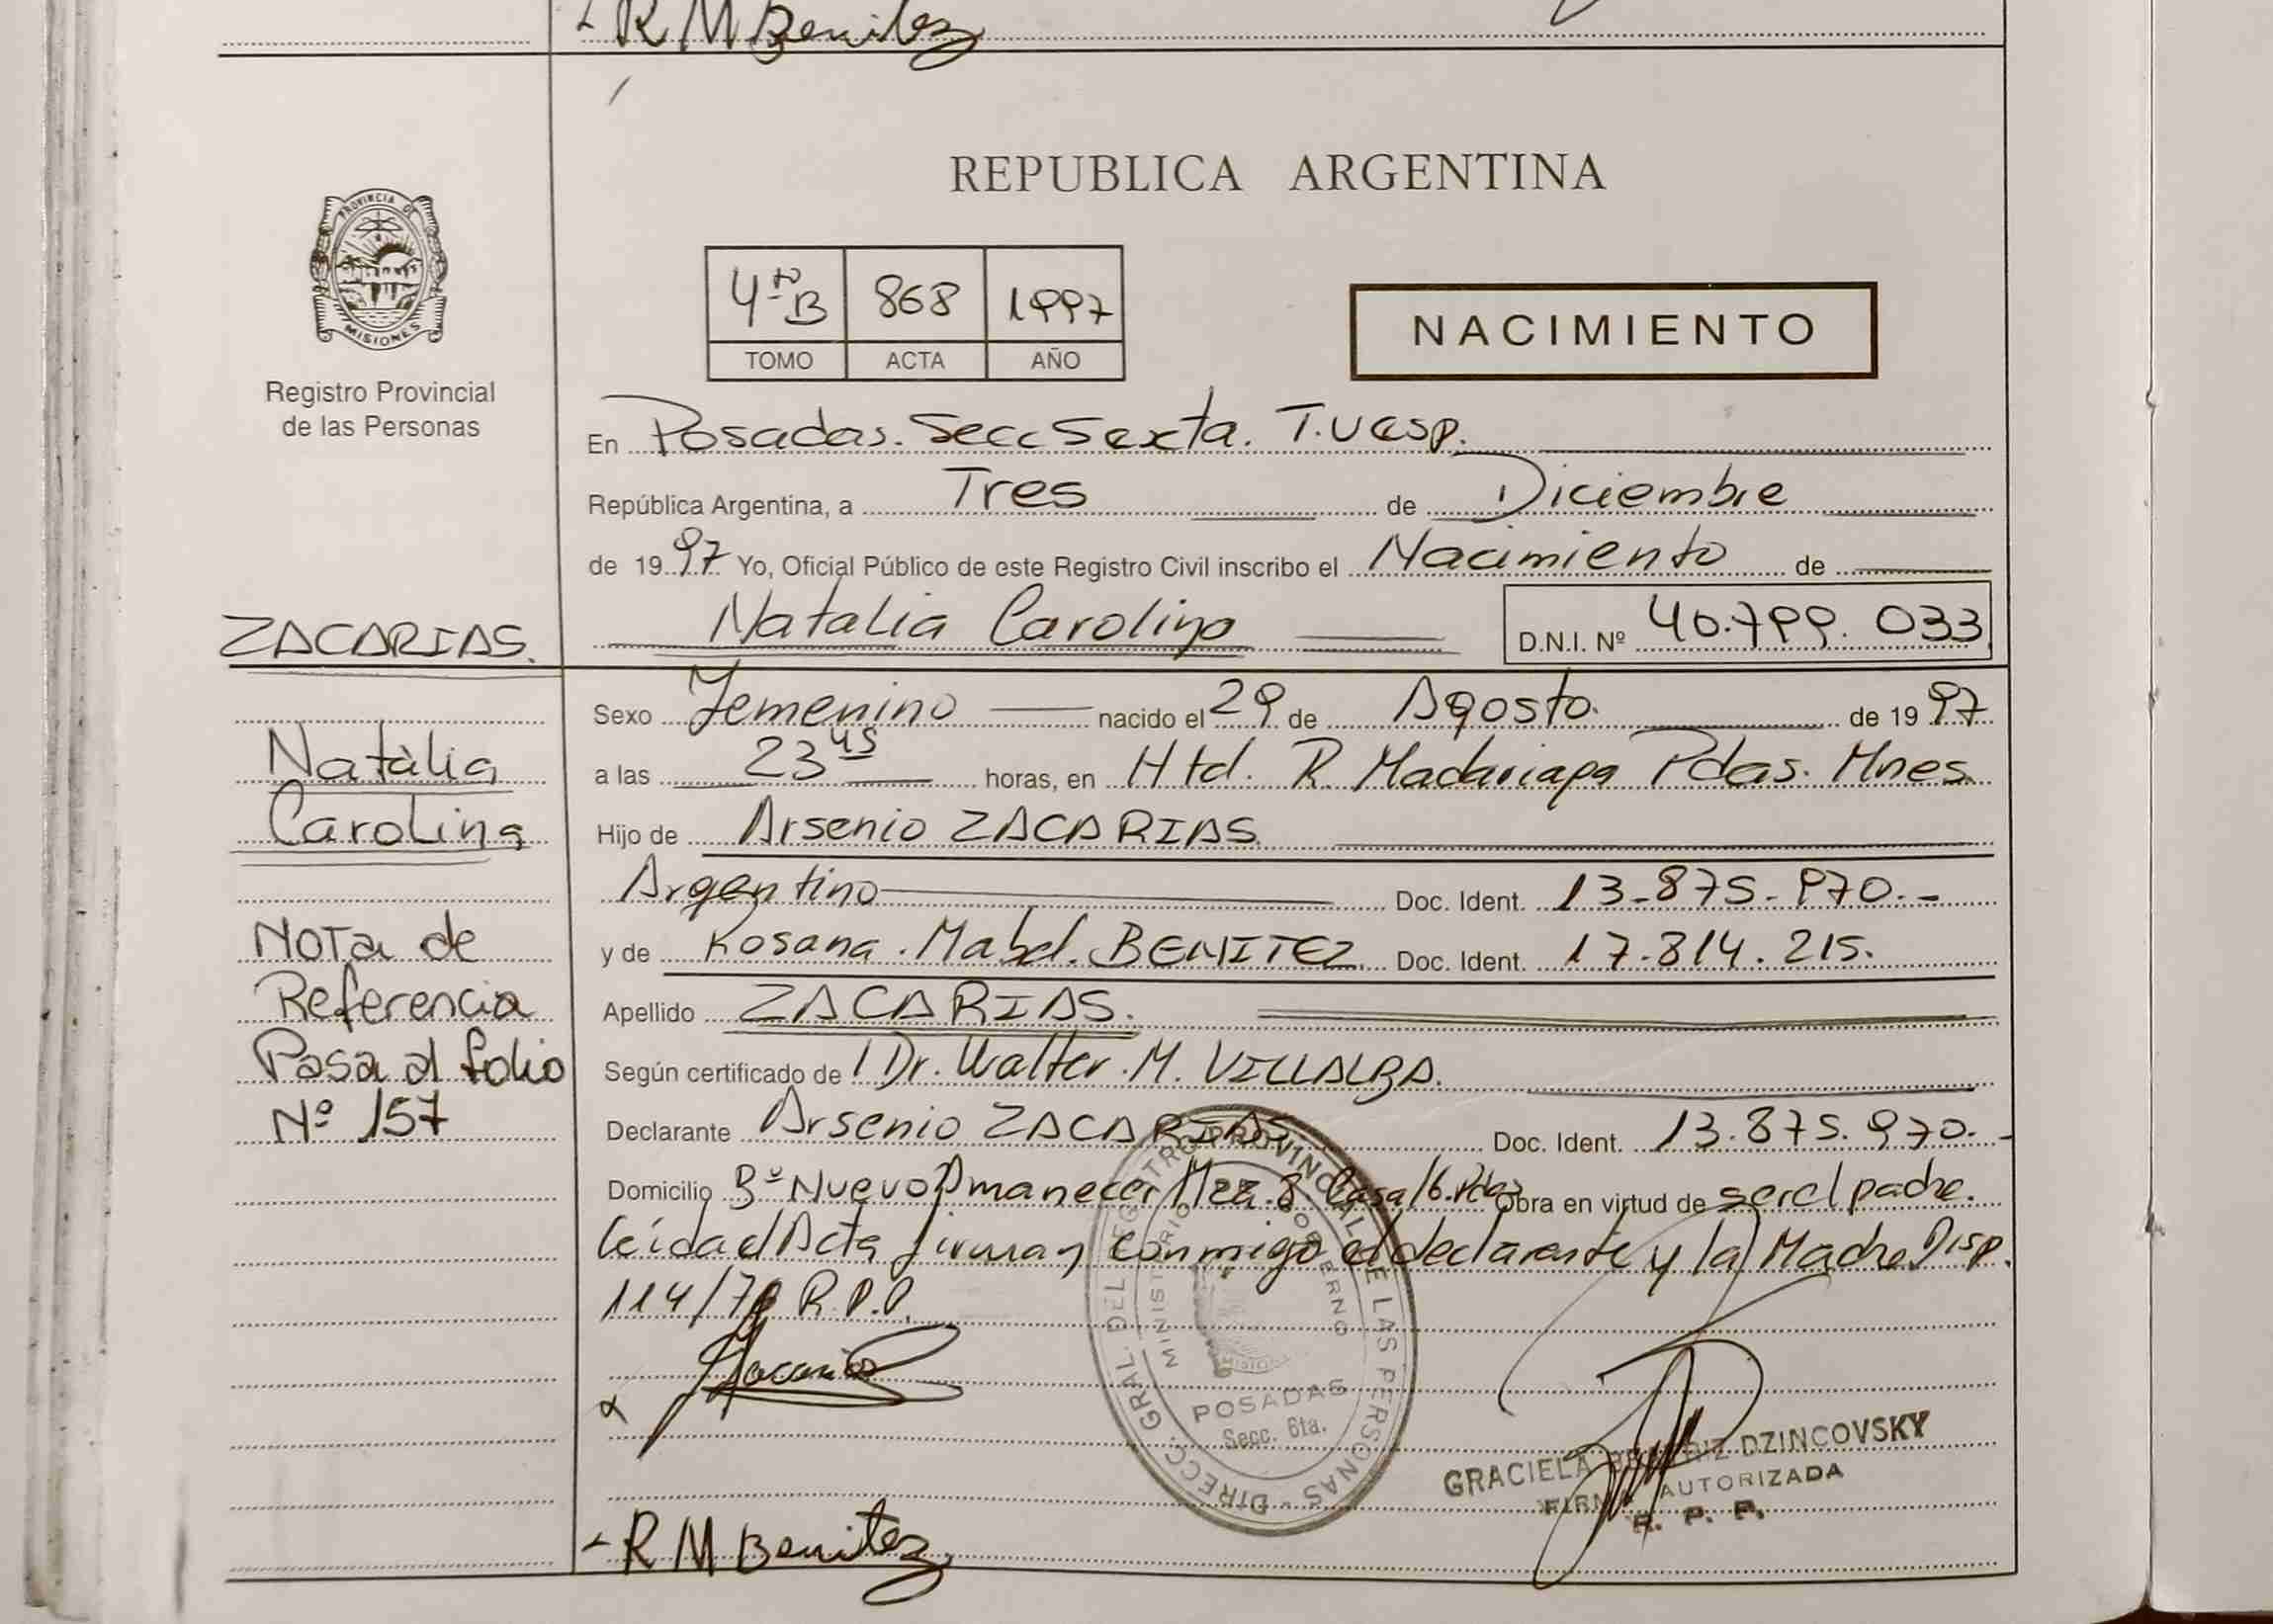 R M Benitez
REPUBLICA ARGENTINA
PROVINCIA DE
MISIONES
Registro Provincial
de las Personas
4to B 868 1997
TOMO ACTA AÑO
NACIMIENTO
En Posadas. Secc Sexta. T. Vesp.
República Argentina, a Tres de Diciembre
de 1997 Yo, Oficial Público de este Registro Civil inscribo el Nacimiento de
Natalia Carolina D.N.I. Nº 40.799.033
ZACARIAS.
Natalia
Carolina
Nota de
Referencia
Pasa al folio
Nº 157
Sexo Femenino nacido el 29 de Agosto. de 1997
a las 23 45 horas, en Htd. R. Madariaga Pdas. Mnes.
Hijo de Arsenio ZACARIAS.
Argentino Doc. Ident. 13.875.970.-
y de Rosana. Mabel. BENITEZ. Doc. Ident. 17.814.215.
Apellido ZACARIAS.
Según certificado de Dr. Walter. M. VILLALBA.
Declarante Arsenio ZACARIAS. Doc. Ident. 13.875.970.-
Domicilio Bº Nuevo Amanecer Mza. 8 Casa 16. Pdas Obra en virtud de ser el padre.
Leída el Acta firman conmigo el declarante y la Madre Disp.
114/79 R.P.P.
DIRECC. GRAL. DEL REGISTRO PROVINCIAL DE LAS PERSONAS
MINISTERIO DE GOBIERNO
MISIONES
POSADAS
Secc. 6ta.
GRACIELA BEATRIZ DZINCOVSKY
FIRMA AUTORIZADA
R. P. P.
R M Benitez